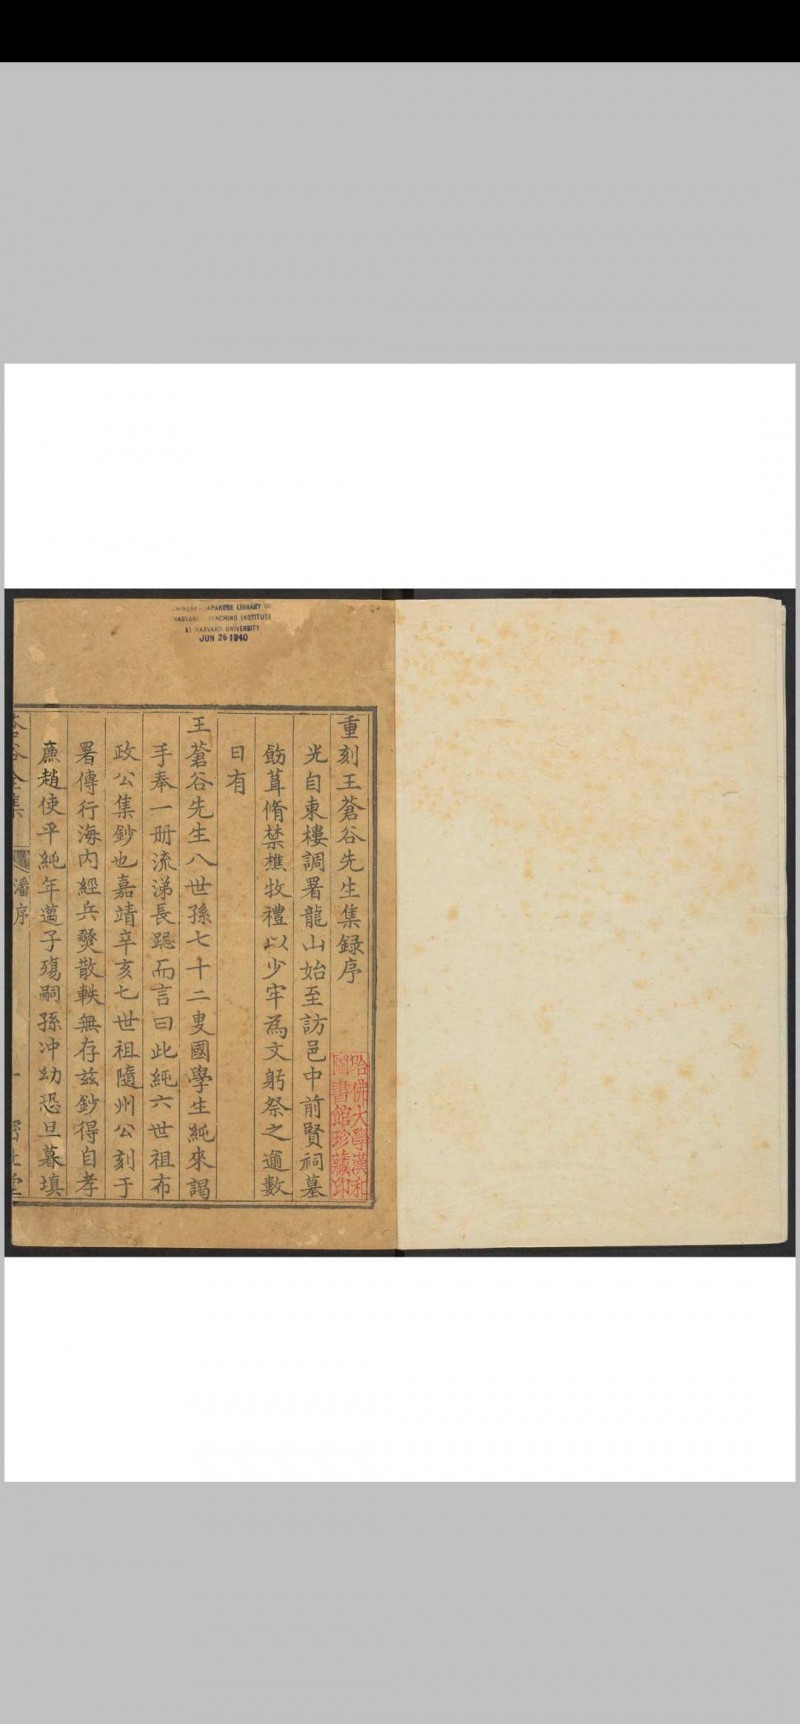 JAPANESE LIBRARY
HARVARD UNIVERSITY
JUN 26 1940
重刻王蒼谷先生集録序
光自東樓調署龍山始至訪邑中前賢祠墓
飭葺脩禁樵牧禮以少牢為文躬祭之逾數
日有
王蒼谷先生八世孫七十二叟國學生純來謁
手奉一册流涕長跽而言曰此純六世祖布
政公集鈔也嘉靖辛亥七世祖隨州公刻于
署傳行海内經兵燹散軼無存兹鈔得自孝
廉趙使平純年邁子殤嗣孫冲幼恐旦暮填
蒼谷全集
潘序
一
哈佛大學漢和
圖書館珍藏印